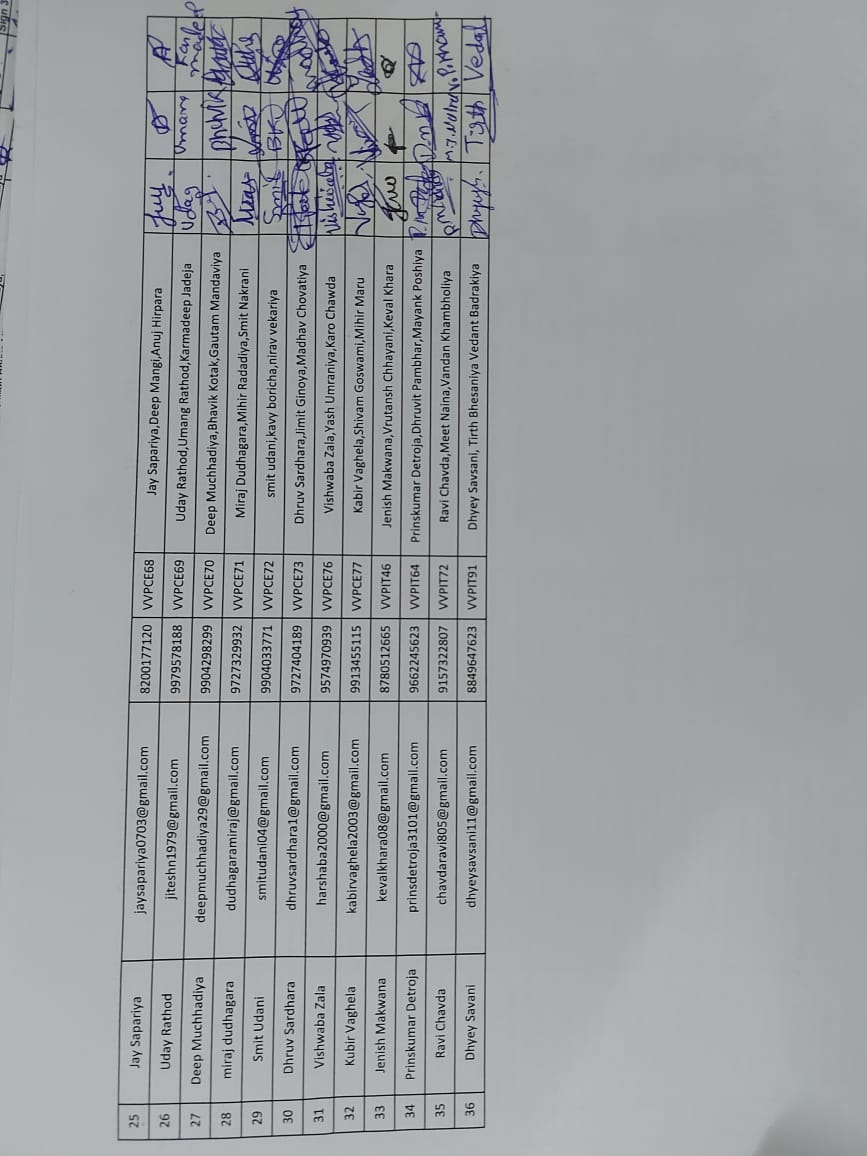 Sign 3
25 Jay Sapariya jaysapariya0703@gmail.com 8200177120 VVPCE68 Jay Sapariya,Deep Mangi,Anuj Hirpara
26 Uday Rathod jiteshn1979@gmail.com 9979578188 VVPCE69 Uday Rathod,Umang Rathod,Karmadeep Jadeja Uday Umang Karmadeep
27 Deep Muchhadiya deepmuchhadiya29@gmail.com 9904298299 VVPCE70 Deep Muchhadiya,Bhavik Kotak,Gautam Mandaviya Bhavik
28 miraj dudhagara dudhagaramiraj@gmail.com 9727329932 VVPCE71 Miraj Dudhagara,Mihir Radadiya,Smit Nakrani
29 Smit Udani smitudani04@gmail.com 9904033771 VVPCE72 smit udani,kavy boricha,nirav vekariya Smit BK
30 Dhruv Sardhara dhruvsardhara1@gmail.com 9727404189 VVPCE73 Dhruv Sardhara,Jimit Ginoya,Madhav Chovatiya madhav
31 Vishwaba Zala harshaba2000@gmail.com 9574970939 VVPCE76 Vishwaba Zala,Yash Umraniya,Karo Chawda Vishwaba
32 Kubir Vaghela kabirvaghela2003@gmail.com 9913455115 VVPCE77 Kabir Vaghela,Shivam Goswami,Mihir Maru
33 Jenish Makwana kevalkhara08@gmail.com 8780512665 VVPIT46 Jenish Makwana,Vrutansh Chhayani,Keval Khara
34 Prinskumar Detroja prinsdetroja3101@gmail.com 9662245623 VVPIT64 Prinskumar Detroja,Dhruvit Pambhar,Mayank Poshiya
35 Ravi Chavda chavdaravi805@gmail.com 9157322807 VVPIT72 Ravi Chavda,Meet Naina,Vandan Khambholiya
36 Dhyey Savani dhyeysavsani11@gmail.com 8849647623 VVPIT91 Dhyey Savsani, Tirth Bhesaniya Vedant Badrakiya Tirth